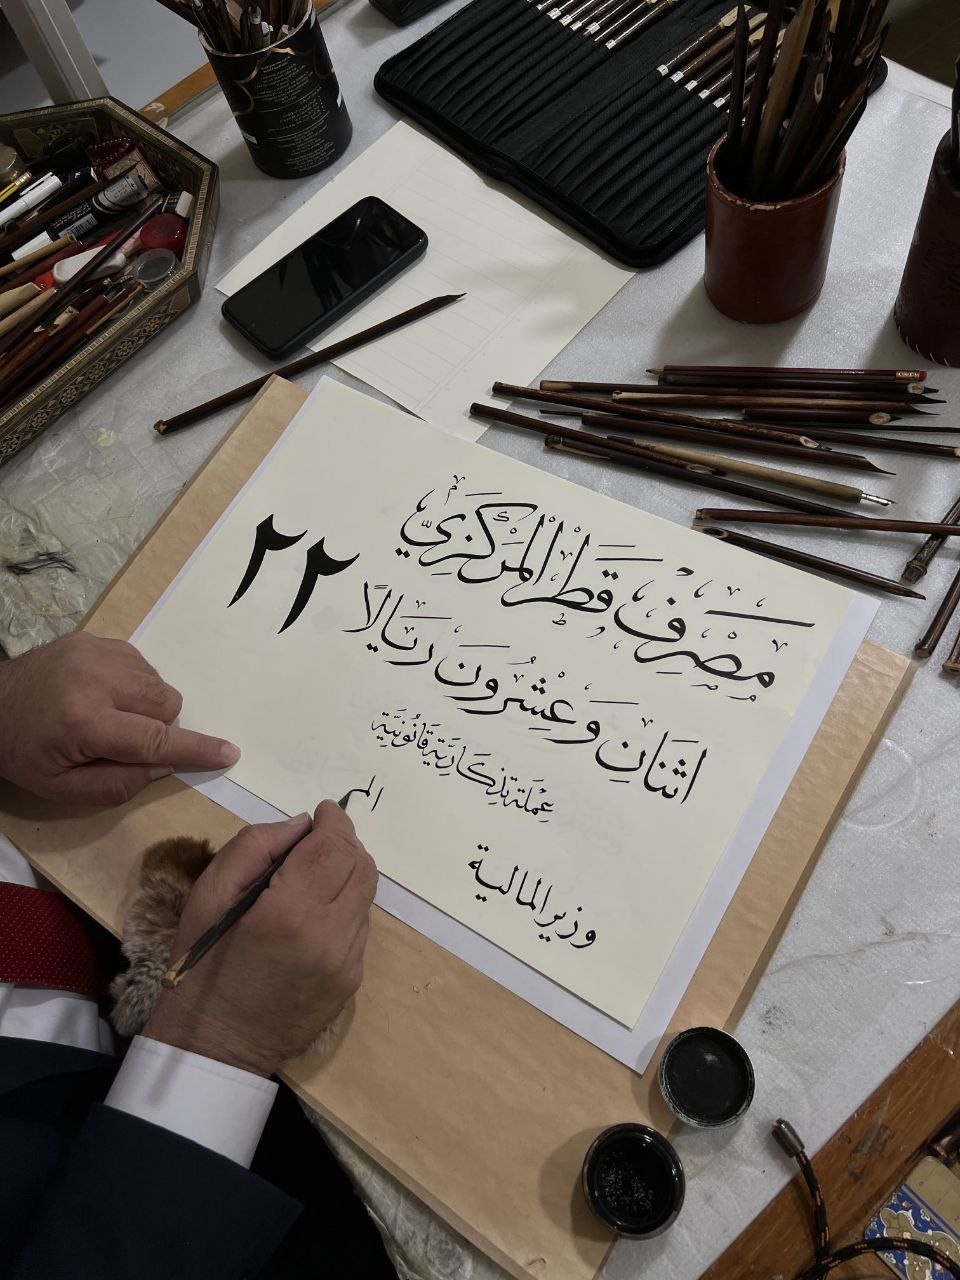 مَصْرَفُ قَطَر المَرْكَزِيّ
اثْنَانِ وَعِشْرُونَ رِيَالًا ٢٢
عِمْلَة تِذْكَارِيَّة قَانُونِيَّة
وزير المالية
الم